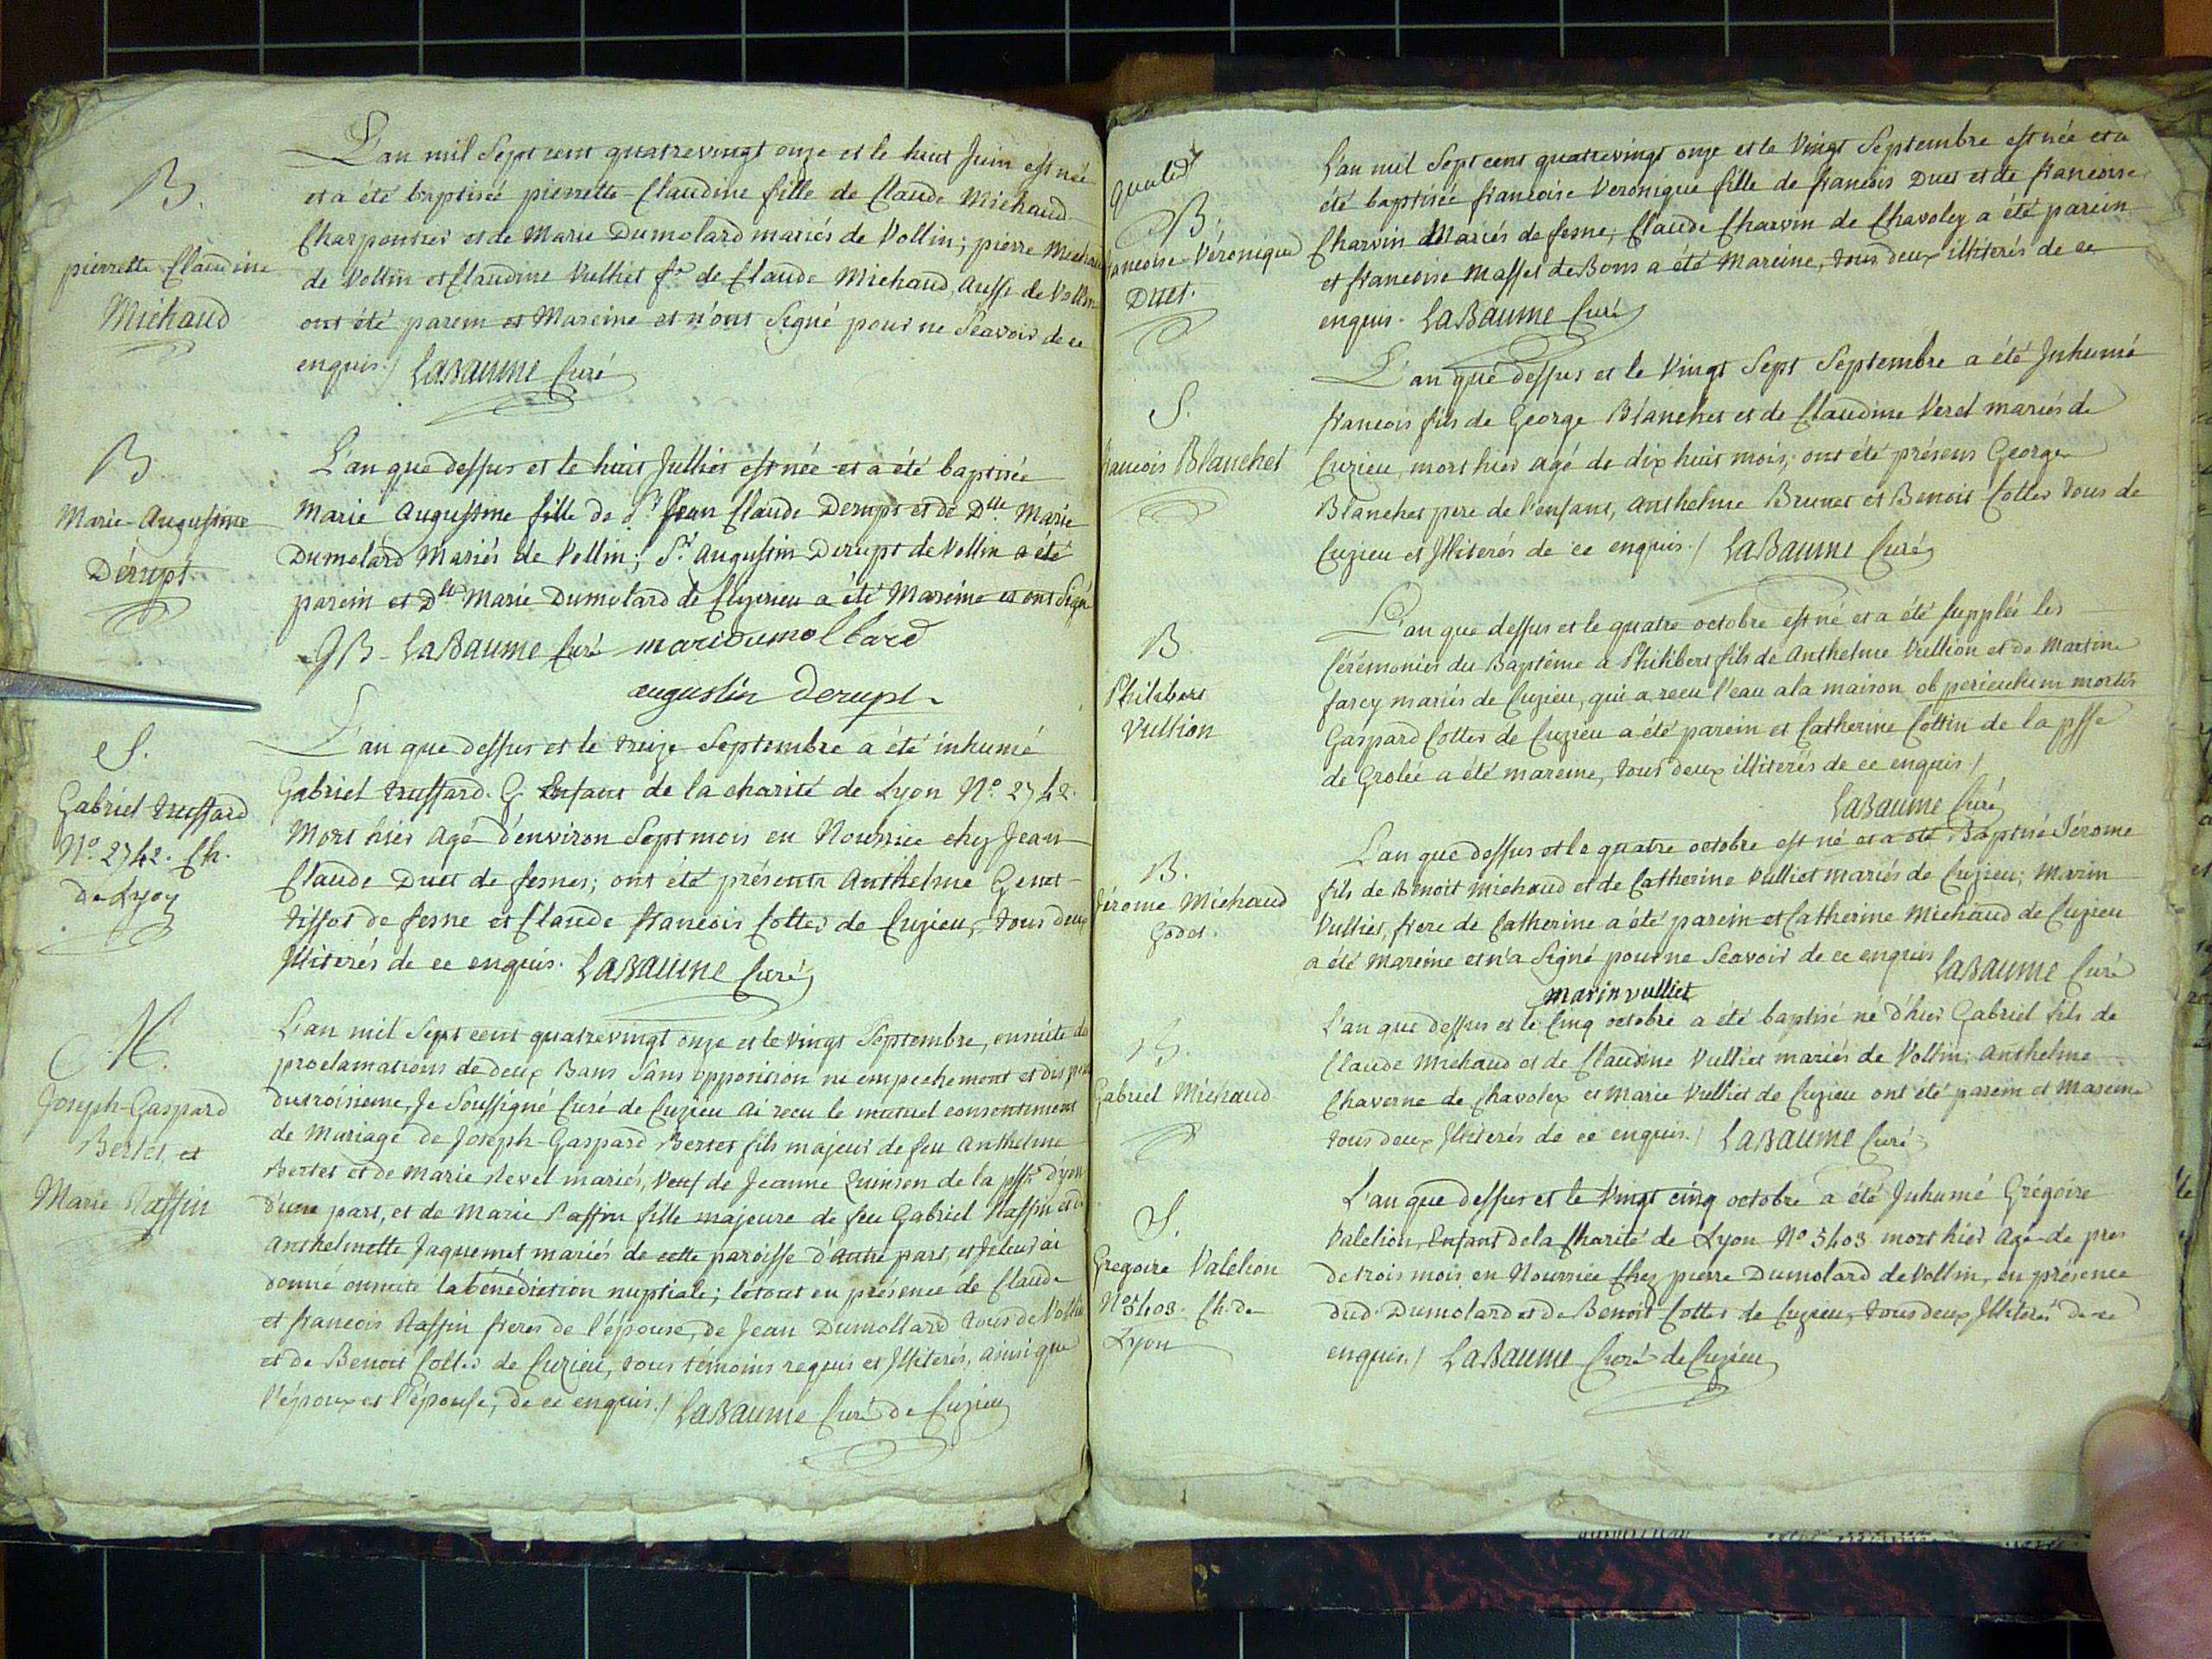 B.
pierrette Claudine
Michaud
L'an mil Sept cent quatrevingt onze et le huit Juin est née
et a été baptisée pierrette-Claudine fille de Claude Michaud
Charpentier et de Marie Dumolard mariés de Vollin; pierre Michaud
de Vollin et Claudine Vulliet f.e de Claude Michaud, aussi de Vollin
ont été parein et Mareine et n'ont Signé pour ne Scavoir de ce
enquis./ LaBaume Curé
B
Marie-Augustine
Dérupt.
L'an que dessus et le huit Julliet est née et a été baptisée
Marie Augustine fille de S.r Jean Claude Derupt et de Dlle Marie
Dumolard Mariés de Vollin; S.r Augustin Derupt de Vollin a été
parein et Dlle Marie Dumolard de Cuzieu a été Mareine et ont Signé
LaBaume Curé mari dumollard
augustin derupt
S.
Gabriel truffard
N.o 2742. Ch.
de Lyon
L'an que dessus et le treize Septembre a été inhumé
Gabriel truffard. G Enfant de la charité de Lyon N.o 2742.
Mort hier agé d'environ Sept mois en Nourrice chez Jean
Claude Duet de fesnes; ont été présents Anthelme Genet-
tissot de fesne et Claude francois Cottes de Cuzieu, tous deux
Illiterés de ce enquis. LaBaume Curé
M.
Joseph-Gaspard
Bertet et
Marie Raffin
L'an mil Sept cent quatrevingt onze et le vingt Septembre, ensuite de
proclamations de deux Bans Sans opposition ni empechement et disp
du troisieme, Je Soussigné Curé de Cuzieu ai recu le mutuel consentement
de Mariage de Joseph-Gaspard Bertet fils majeur de feu Anthelme
Bertet et de Marie Revel mariés, Veuf de Jeanne Quinson de la psse d'yon
d'une part, et de Marie Raffin fille majeure de feu Gabriel Raffin et d'
Anthelmette Jaquemet mariés de cette paroisse d'autre part, et je leur ai
donné ensuite la bénédiction nuptiale; le tout en présence de Claude
et francois Raffin freres de l'épouse, de Jean Dumollard tous de Vollin
et de Benoit Cottes de Cuzieu, tous témoins requis et Illiterés, ainsi que
l'époux et l'épouse, de ce enquis./ LaBaume Curé de Cuzieu
B.
francoise-Véronique
Duet.
L'an mil Sept cent quatrevingt onze et le Vingt Septembre est née et a
été baptisée francoise Veronique fille de francois Duet et de francoise
Charvin Mariés de fesne; Claude Charvin de Chavoley a été parein
et francoise Masset de Bons a été Mareine, tous deux illiterés de ce
enquis. LaBaume Curé
S.
francois Blanchet
L'an que dessus et le Vingt Sept Septembre a été Inhumé
francois fils de George Blanchet et de Claudine Veret mariés de
Cuzieu, mort hier agé de dix huit mois; ont été présens George
Blanchet pere de l'enfant, Anthelme Brunet et Benoit Cottes tous de
Cuzieu et Illiterés de ce enquis./ LaBaume Curé
B
Philibert
Vullion
L'an que dessus et le quatre octobre est né et a été Supplée les
Cérémonies du Baptême a Philibert fils de Anthelme Vullion et de Martine
farcy mariés de Cuzieu, qui a recu l'eau a la maison ob periculum mortis
Gaspard Cottes de Cuzieu a été parein et Catherine Cottin de la psse
de Grolée a été mareine, tous deux illiterés de ce enquis /
LaBaume Curé
B.
Jérome Michaud
Godet.
L'an que dessus et le quatre octobre est né et a été Baptisé Jérome
fils de Benoit Michaud et de Catherine Vulliet mariés de Cuzieu; Marin
Vulliet, frere de Catherine a été parein et Catherine Michaud de Cuzieu
a été Mareine et n'a Signé pour ne Scavoir de ce enquis LaBaume Curé
marin vulliet
B.
Gabriel Michaud
L'an que dessus et le Cinq octobre a été baptisé né d'hier Gabriel fils de
Claude Michaud et de Claudine Vulliet mariés de Vollin; Anthelme
Chaverne de Chavolex et Marie Vulliet de Cuzieu ont été parein et Mareine
tous deux Illiterés de ce enquis./ LaBaume Curé
S.
Gregoire Valelion
N.o 5403. Ch. de
Lyon
L'an que dessus et le Vingt cinq octobre a été Inhumé Grégoire
Valelion, Enfant de la Charité de Lyon N.o 5403 mort hier agé de pres
de trois mois, en Nourrice Chez pierre Dumolard de Vollin, en présence
dud. Dumolard et de Benoit Cottes de Cuzieu, tous deux Illiterés de ce
enquis./ LaBaume Curé de Cuzieu